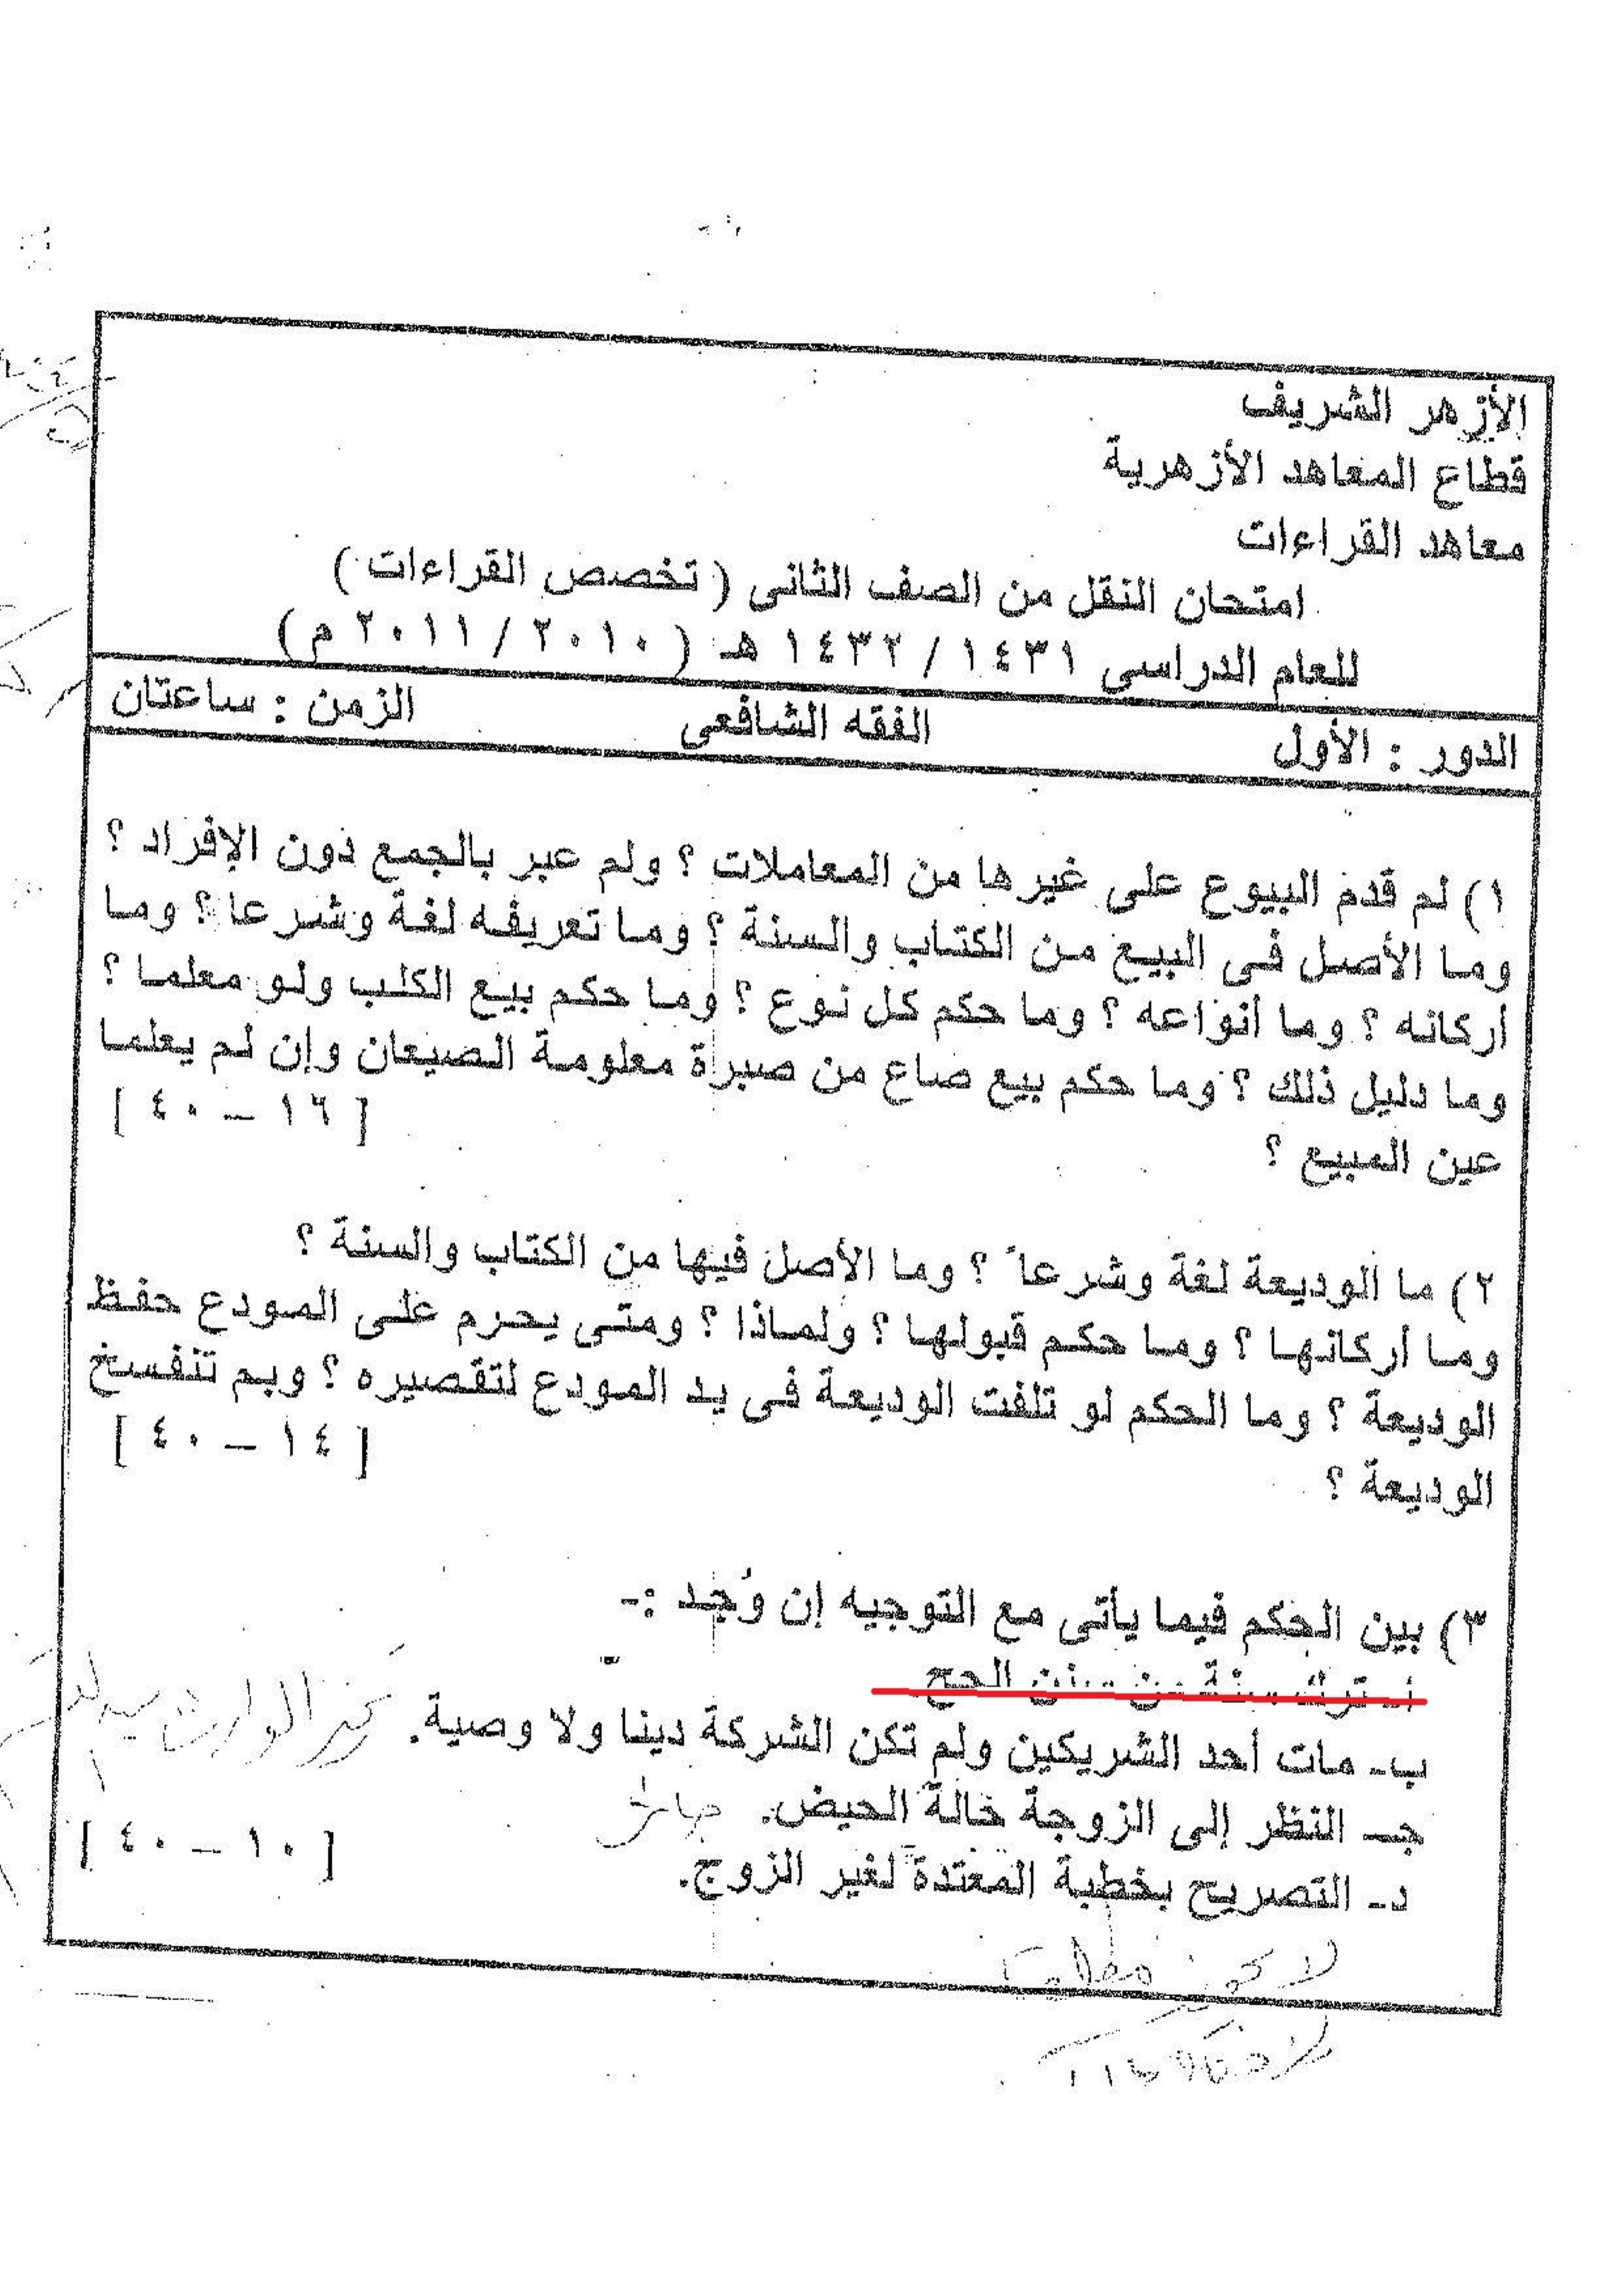 الأزهر الشريف
قطاع المعاهد الأزهرية
معاهد القراءات
امتحان النقل من الصف الثانى ( تخصص القراءات )
للعام الدراسى ١٤٣١ / ١٤٣٢ هـ ( ٢٠١٠ / ٢٠١١ م )
الدور : الأول الفقه الشافعى الزمن : ساعتان
١) لم قدم البيوع على غيرها من المعاملات ؟ ولم عبر بالجمع دون الإفراد ؟
وما الأصل فى البيع من الكتاب والسنة ؟ وما تعريفه لغة وشرعا ؟ وما
أركانه ؟ وما أنواعه ؟ وما حكم كل نوع ؟ وما حكم بيع الكلب ولو معلما ؟
وما دليل ذلك ؟ وما حكم بيع صاع من صبرة معلومة الصيعان وإن لم يعلما
عين المبيع ؟ [ ١٦ – ٤٠ ]
٢) ما الوديعة لغة وشرعاً ؟ وما الأصل فيها من الكتاب والسنة ؟
وما أركانها ؟ وما حكم قبولها ؟ ولماذا ؟ ومتى يحرم على المودع حفظ
الوديعة ؟ وما الحكم لو تلفت الوديعة فى يد المودع لتقصيره ؟ وبم تنفسخ
الوديعة ؟ [ ١٤ – ٤٠ ]
٣) بين الحكم فيما يأتى مع التوجيه إن وُجد :-
أ- ترك سنة من سنن الحج
ب- مات أحد الشريكين ولم تكن الشركة دينا ولا وصية.
جـ- النظر إلى الزوجة حالة الحيض. جائز
د- التصريح بخطبة المعتدة لغير الزوج. [ ١٠ – ٤٠ ]